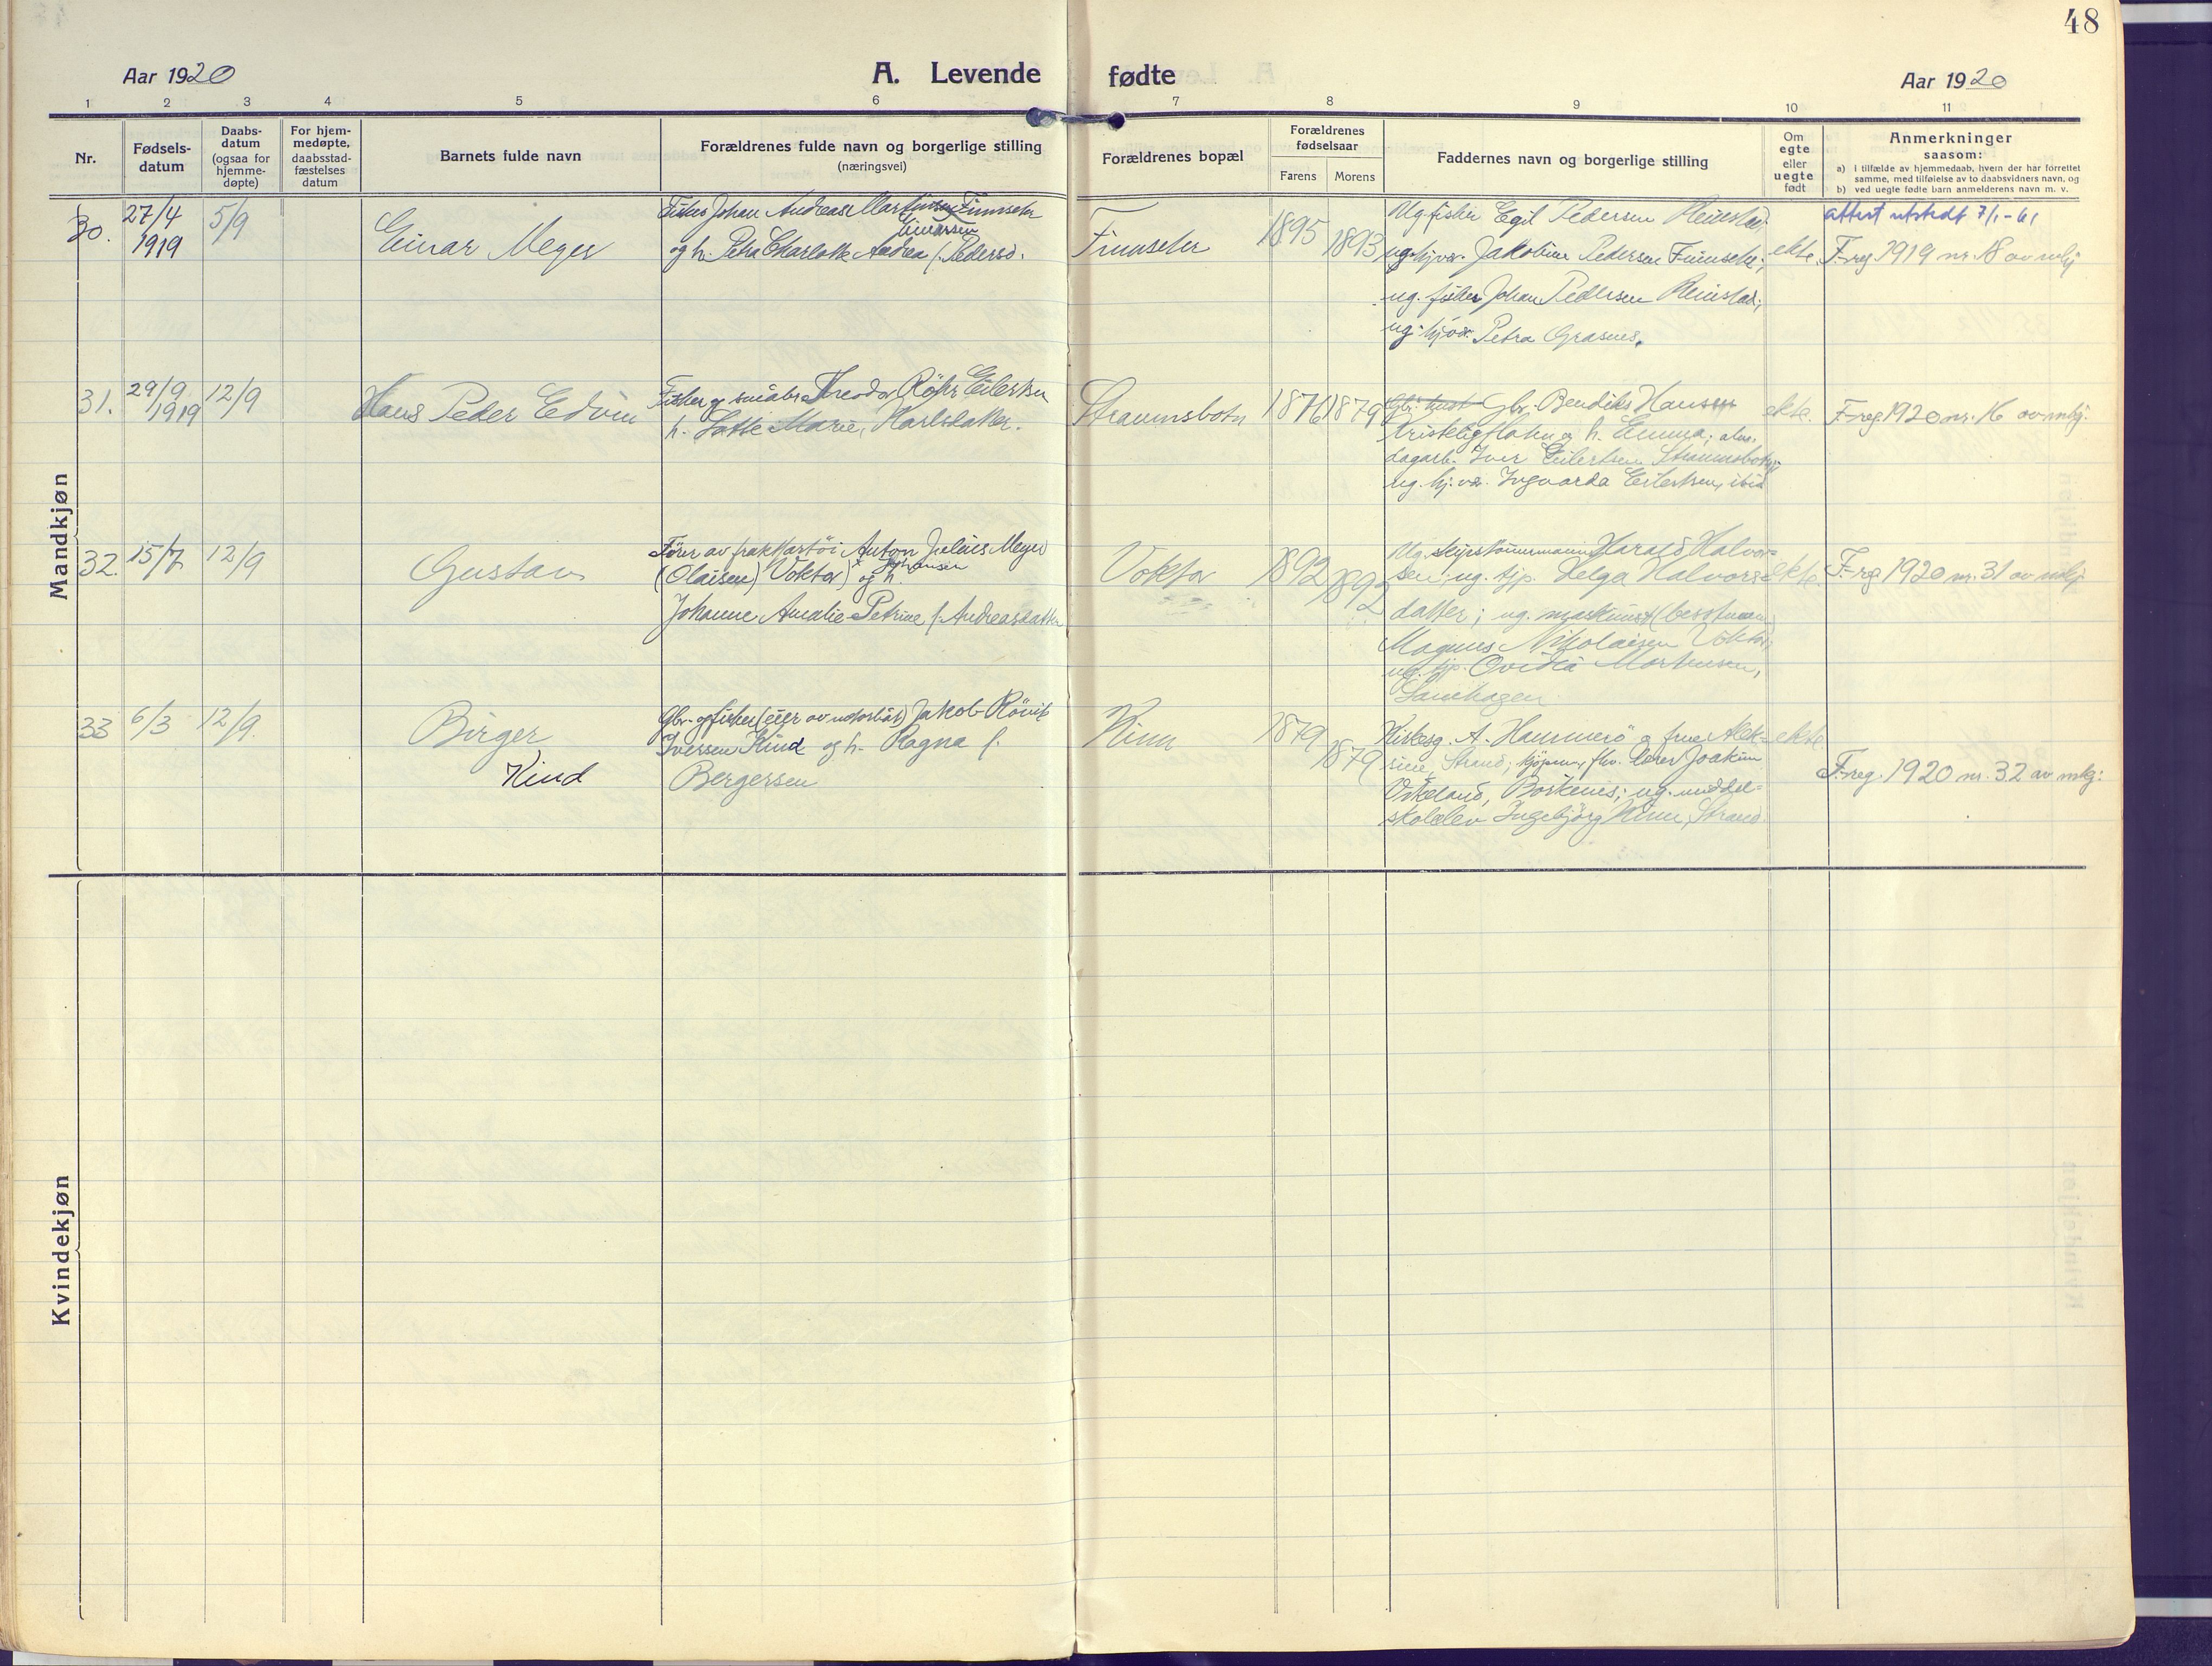 48
Aar 1920
A. Levende fødte
Aar 1920
1 2 3 4 5 6 7 8 9 10 11
Nr.
Fødsels-
datum
Daabs-
datum
(ogsaa for
hjemme-
døpte)
For hjem-
medøpte,
daabsstad-
fæstelses
datum
Barnets fulde navn
Forældrenes fulde navn og borgerlige stilling
(næringsvei)
Forældrenes bopæl
Forældrenes
fødselsaar
Farens Morens
Faddernes navn og borgerlige stilling
Om
egte
eller
uegte
født
Anmerkninger
saasom:
a) I tilfælde av hjemmedaab, hvem der har forrettet
samme, med tilføielse av to daabsvidners navn, og
b) ved uegte fødte barn anmelderens navn m. v.
Mandkjøn
30.
27/4
1919
5/9
Einar Meyer
Fisker Johan Andreas Martinsen Finnseter
Einarsen
og h. Petra Charlotte Andrea f. Pedersd.
Finnseter
1895
1893
Ug. fisker Egil Pedersen Reinstad;
ug. hjvær. Jakobine Pedersen Finnseter;
ug. fisker Johan Pedersen Reinstad;
ug. hjvær. Petra Grasnes.
ekte.
attest utstedt 7/1-61
F.reg. 1919 nr. 18 av mkj
31.
29/9
1919
12/9
Hans Peder Edvin
Fisker og småbr. Theodor Röhr Eilertsen
h. Lotte Marie, Karlsdatter.
Straumsbotn
1876
1879
Gbr. Bendiks Hansen
og h. Emma;
dagarb. Iver Eilertsen Straumsbotn;
ug. hj.vær. Ingvarda Eilertsen, ibid
ekte.
F.reg. 1920 nr. 16 av mkj.
32.
15/7
12/9
Gustav
Fører av fraktfartöi Anton Julius Meyer
Johansen
(Olaisen) Voktor) og h.
Johanne Amalie Petrine f. Andreasdatter
Voktor
1892
1892
Ug. skipstömmermann Harald Halvor-
sen; ug. tjp. Helga Halvors-
datter; ug. maskinist (bestmann)
Magnus Nikolaisen Voktor;
ug. tjp. Ovidia Mortensen,
ekte.
F.reg 1920 nr. 31 av mkj
33
6/3
12/9.
Birger
Kind
Gbr. og fisker (eier av motorbåt) Jakob Rövik
Iversen Kind og h. Ragna f.
Bergersen
Kinn
1879
1879
Kirkesg. A. Hammerö og frue Alek-
sine, Strand; kjöpm., fhv. lærer Joakim
Virkeland, Borkenes; ug. middel-
skoleelev Ingebjörg Kinn, Strand.
ekte.
F.reg. 1920 nr. 32 av mkj.
Kvindekjøn